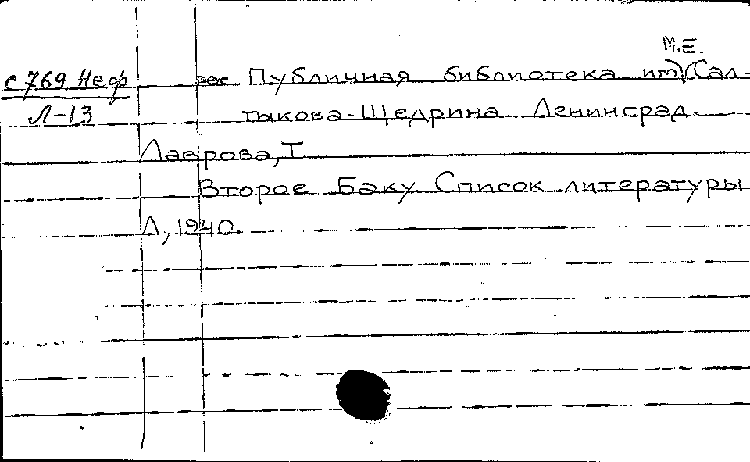 М.Е.
с 769 Неф рес Публичная библиотека им. Сал-
Л-13 тыкова-Щедрина Ленинград
Лаврова, Т
Второе Баку Список литературы
Л, 1940